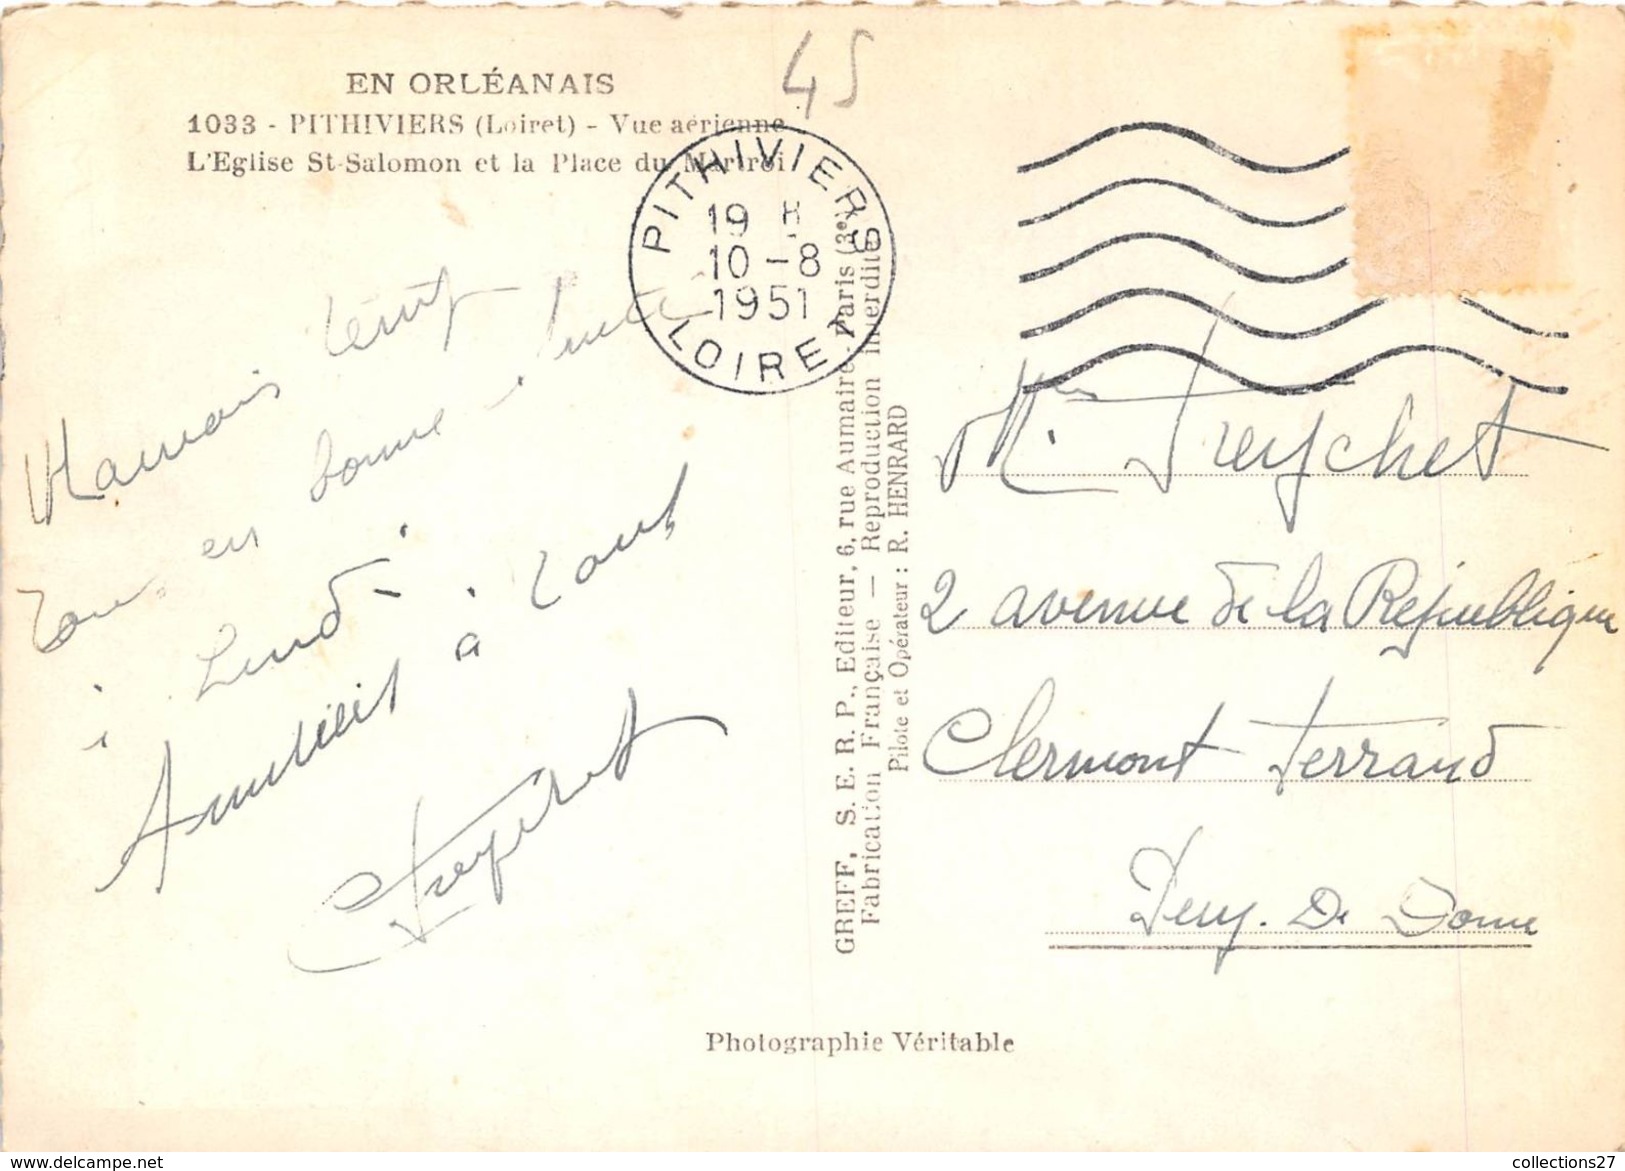 45
EN ORLÉANAIS
1033 - PITHIVIERS (Loiret) - Vue aérienne
L'Eglise St-Salomon et la Place du Martroi
PITHIVIERS
19 H
10-8
1951
LOIRET
Mauvais temps
Tous en bonne santé
à Lundi
Amitiés à tous
Treychet
GREFF, S. E. R. P., Editeur, 6, rue Aumaire, Paris (3e)
Fabrication Française — Reproduction interdite
Pilote et Opérateur : R. HENRARD
Treychet
2 avenue de la République
Clermont Ferrand
Puy. De Dome
Photographie Véritable
collections27